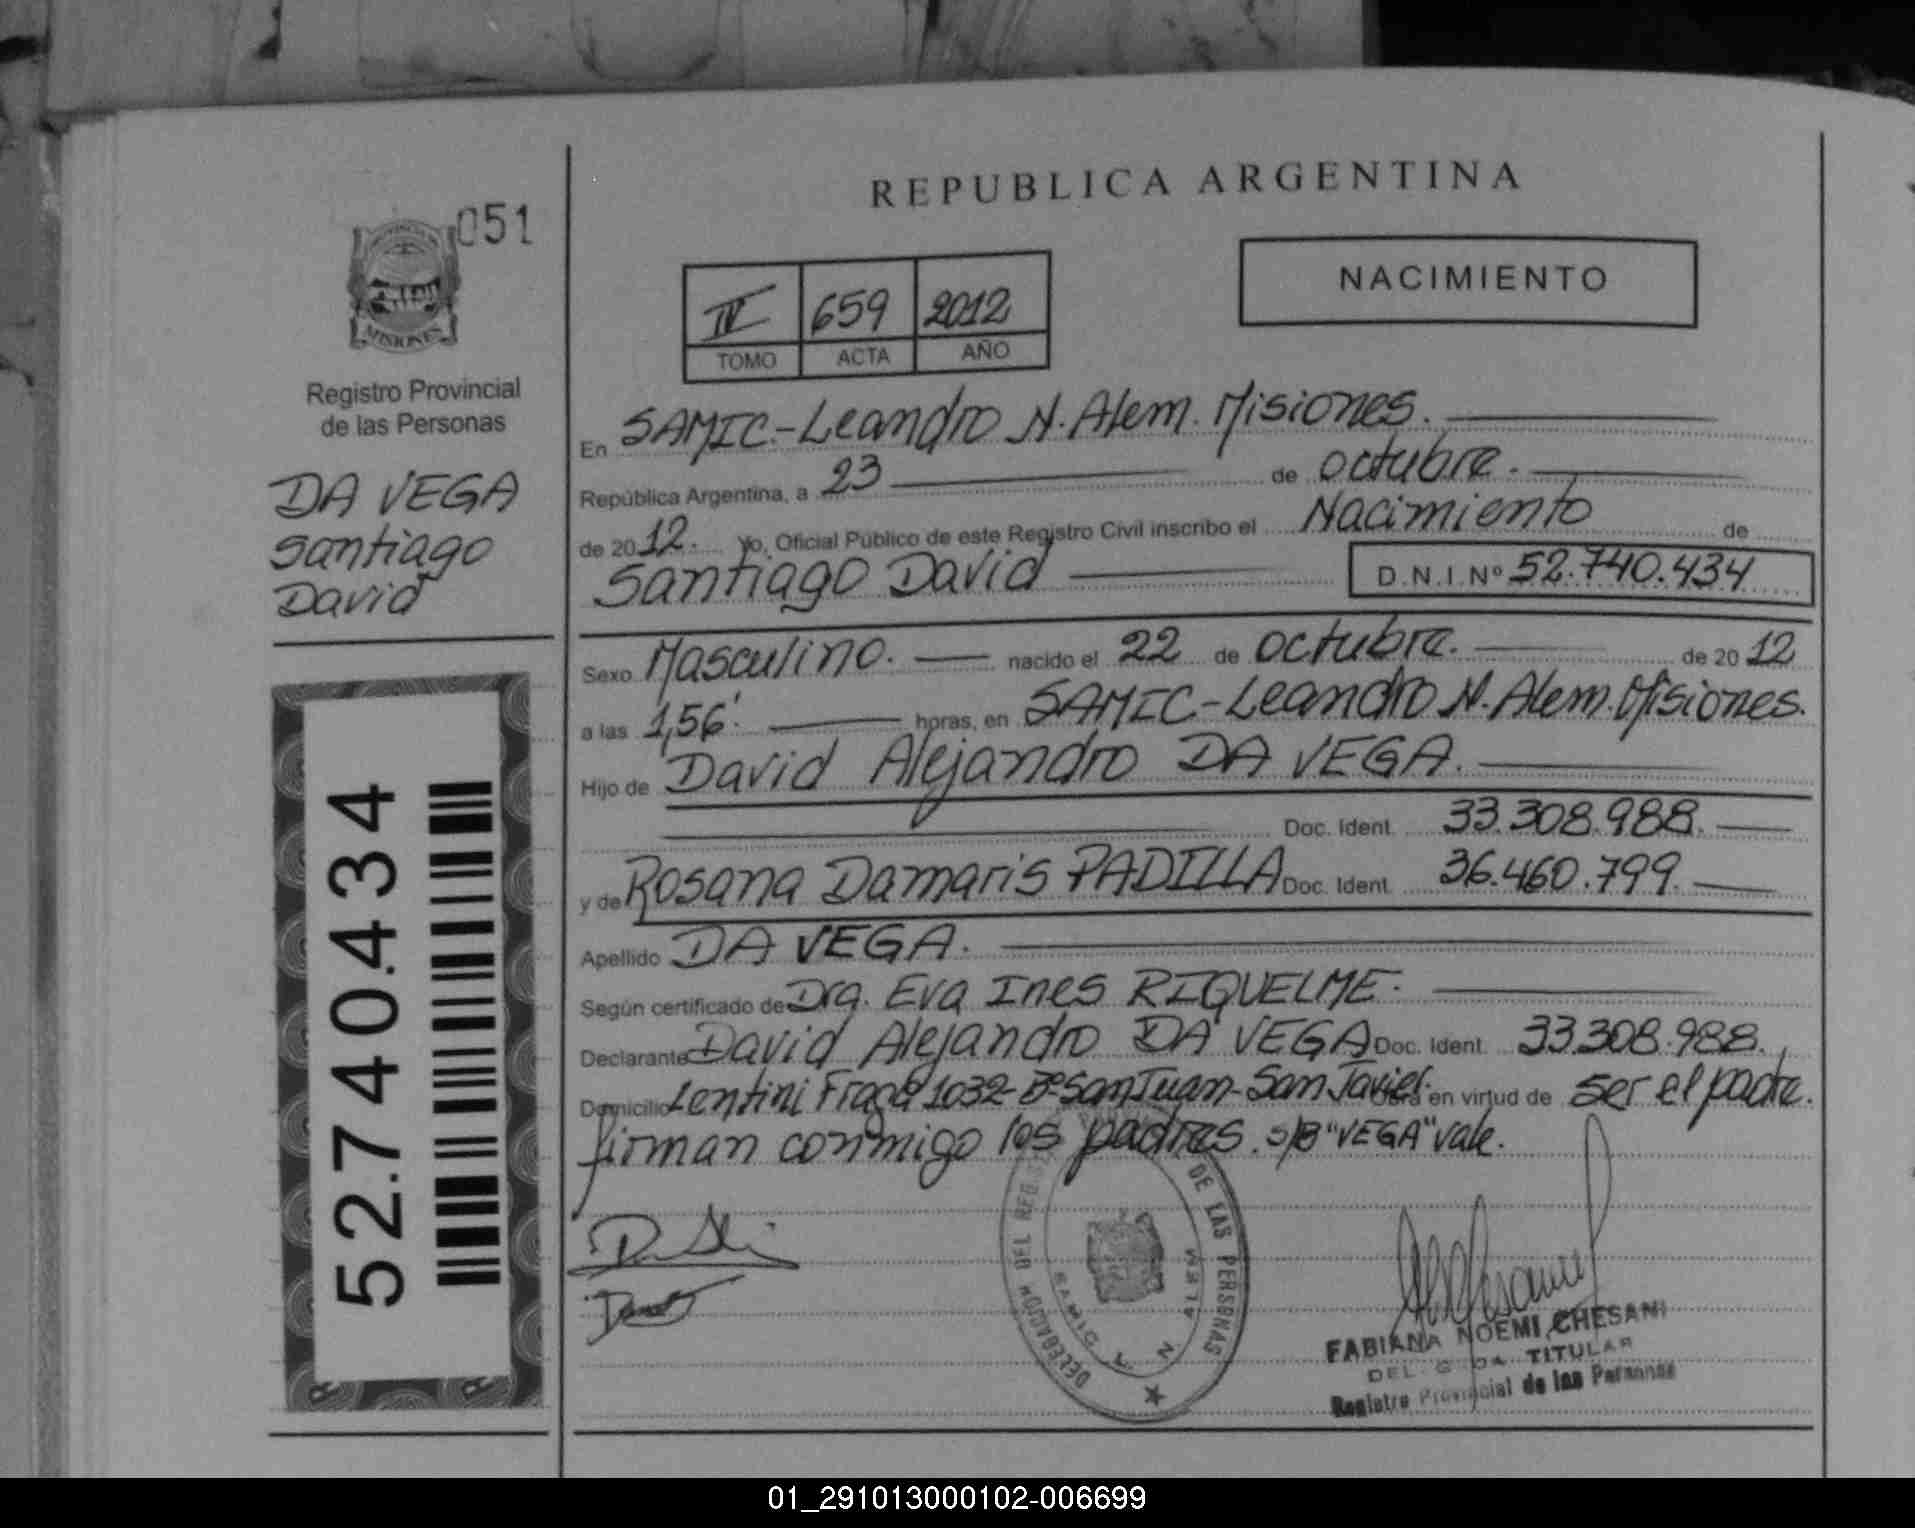 REPUBLICA ARGENTINA
051
NACIMIENTO
PROVINCIA DE
MISIONES
IV 659 2012
TOMO ACTA AÑO
Registro Provincial
de las Personas
DA VEGA
Santiago
David
En SAMIC.-Leandro N. Alem. Misiones.
República Argentina, a 23 de octubre.
de 2012. Yo, Oficial Público de este Registro Civil inscribo el Nacimiento de
Santiago David D.N.I. Nº 52.740.434
Sexo Masculino. nacido el 22 de octubre. de 2012
a las 1,56'. horas, en SAMIC-Leandro N. Alem. Misiones.
Hijo de David Alejandro DA VEGA.
Doc. Ident. 33.308.988.
y de Rosana Damaris PADILLA Doc. Ident. 36.460.799.
Apellido DA VEGA.
Según certificado de Dra. Eva Ines RIQUELME.
Declarante David Alejandro DA VEGA Doc. Ident. 33.308.988.
Domicilio Lentini Fraga 1032-Bº San Juan-San Javier. Obra en virtud de ser el padre.
firman conmigo los padres. s/B "VEGA" vale.
52.740.434
DELEGACION DEL REG. DE LAS PERSONAS
SAMIC L. N. ALEM
FABIANA NOEMI CHESANI
TITULAR
Registro Provincial de las Personas
01_291013000102-006699